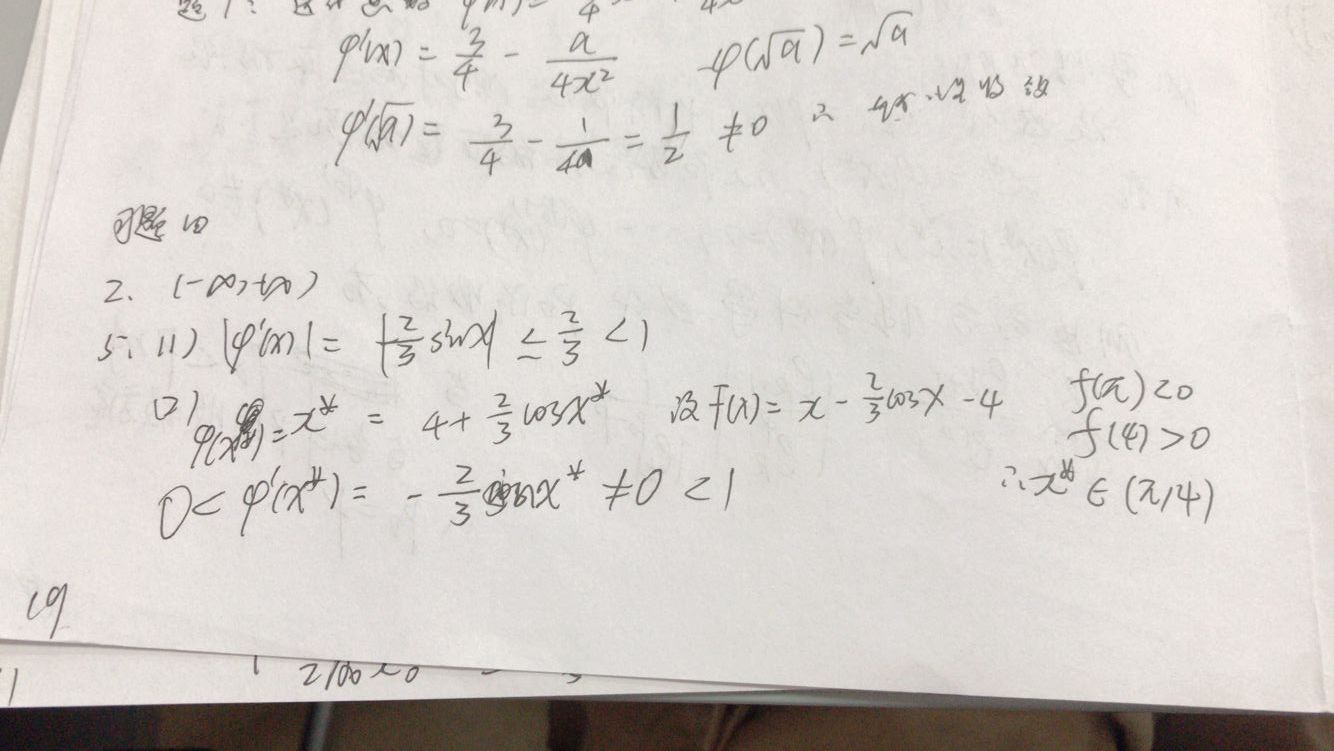 题1: φ(x) = 4 4x
φ'(x) = 3/4 - a/4x² φ(√a) = √a
φ'(√a) = 3/4 - 1/4a = 1/2 ≠ 0 ∴ 线性收敛
习题10
2. (-∞,+∞)
5. (1) |φ'(x)| = |-2/3 sinx| ≤ 2/3 < 1
(2) φ(x*) = x* = 4 + 2/3 cosx* 设 f(x) = x - 2/3 cosx - 4 f(π) < 0
f(4) > 0
0 < φ'(x*) = - 2/3 sinx* ≠ 0 < 1 ∴ x* ∈ (π,4)
19